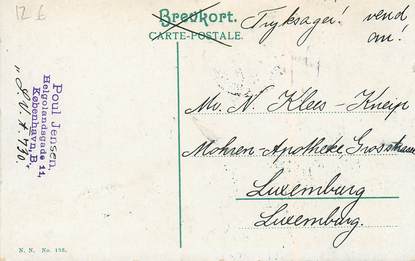 12 £
Brevkort.
CARTE-POSTALE.
Tryksager! vend
om!
Poul Jensen,
Helgolandsgade 11,
København, B.
Mr. N. Klees-Kneip
Mohren-Apotheke, Grosstrasse
Luxemburg
Luxemburg.
N. N. No. 138.